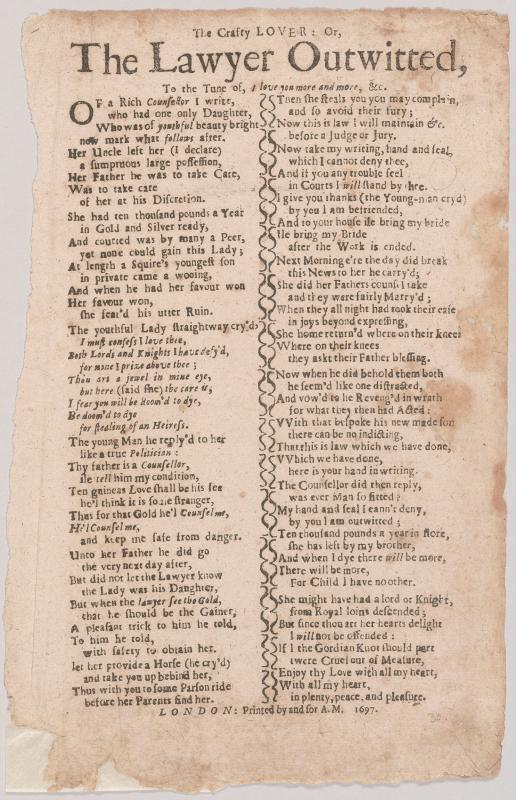 The Crafty LOVER: Or,
The Lawyer Outwitted,
To the Tune of, I love you more and more, &c.
OF a Rich Counsellor I write,
who had one only Daughter,
Who was of youthful beauty bright
now mark what follows after.
Her Uncle left her (I declare)
a sumptuous large possession,
Her Father he was to take Care,
Was to take care
of her at his Discretion.
She had ten thousand pounds a Year
in Gold and Silver ready,
And courted was by many a Peer,
yet none could gain this Lady;
At length a Squire's youngest son
in private came a wooing,
And when he had her favour won
Her favour won,
she fear'd his utter Ruin.
The youthful Lady straightway cry'd
I must confess I love thee,
Both Lords and Knights I have defy'd,
for none I prize above thee;
Thou art a jewel in mine eye,
but here (said she) the care is,
I fear you will be doom'd to dye,
Be doom'd to dye
for stealing of an Heiress.
The young Man he reply'd to her
like a true Politician:
Thy father is a Counsellor,
ile tell him my condition,
Ten guineas Love shall be his fee
he'l think it is some stranger,
Thus for that Gold he'l Counsel me,
He'l Counsel me,
and keep me safe from danger.
Unto her Father he did go
the very next day after,
But did not let the Lawyer know
the Lady was his Daughter,
But when the lawyer see the Gold,
that he should be the Gainer,
A pleasant trick to him he told,
To him he told,
with safety to obtain her.
let her provide a Horse (he cry'd)
and take you up behind her,
Thus with you to some Parson ride
before her Parents find her.
Then she steals you you may complain,
and so avoid their fury;
Now this is law I will maintain &c.
before a Judge or Jury.
Now take my writing, hand and seal,
which I cannot deny thee,
And if you any trouble feel
in Courts I will stand by thee.
I give you thanks (the Young-man cry'd)
by you I am befriended,
And to your house ile bring my bride
Ile bring my Bride
after the Work is ended.
Next Morning e're the day did break
this News to her he carry'd;
She did her Fathers counsel take
and they were fairly Marry'd;
When they all night had took their ease
in joys beyond expressing,
She home return'd where on their knees
Where on their knees
they askt their Father blessing.
Now when he did behold them both
he seem'd like one distracted,
And vow'd to be Reveng'd in wrath
for what they then had Acted:
VVith that bespoke his new made son
there can be no indicting,
That this is law which we have done,
VVhich we have done,
here is your hand in writing.
The Counsellor did then reply,
was ever Man so fitted?
My hand and seal I cann't deny,
by you I am outwitted;
Ten thousand pounds a year in store,
she has left by my brother,
And when I dye there will be more,
There will be more,
For Child I have no other.
She might have had a lord or Knight,
from Royal loins descended;
But since thou art her hearts delight
I will not be offended:
If I the Gordian Knot should part
twere Cruel out of Measure,
Enjoy thy Love with all my heart,
With all my heart,
in plenty, peace, and pleasure.
LONDON: Printed by and for A.M. 1697.